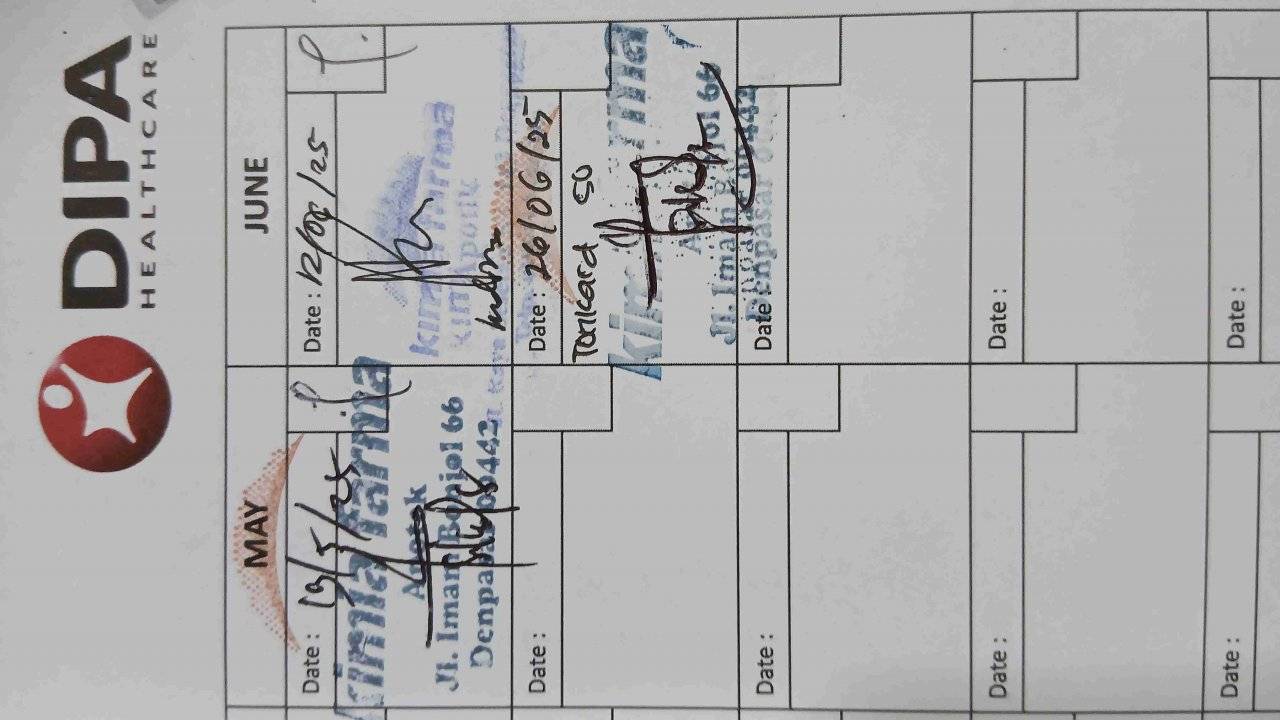 DIPA
HEALTHCARE
MAY
JUNE
Date : 19/5/25
kimia farma
Apotek
Jl. Imam Bonjol 66
Denpasar 80442
Date :
Date :
Date :
Date :
Date : 12/06/25
kimia farma
Apotik
Date : 26/06/25
Tonicard 50
kimia farma
Jl. Imam Bonjol 66
Denpasar 80442
Date :
Date :
Date :